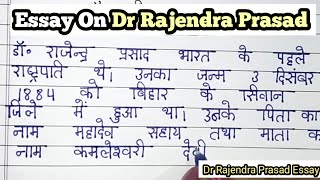 Essay On Dr Rajendra Prasad
डॉ॰ राजेन्द्र प्रसाद भारत के पहले
राष्ट्रपति थे। उनका जन्म 3 दिसंबर
1884 को बिहार के सिवान
जिले में हुआ था। उनके पिता का
नाम महादेव सहाय तथा माता का
नाम कमलेश्वरी देवी
Dr Rajendra Prasad Essay